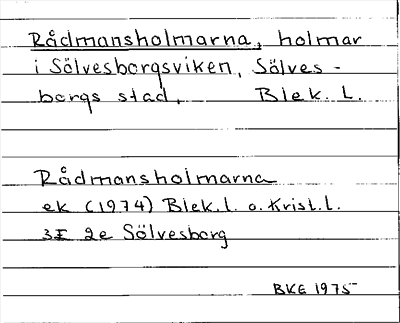 Rådmansholmarna, holmar
i Sölvesborgsviken, Sölves-
borgs stad, Blek. L.
Rådmansholmarna
ek (1974) Blek.l. o. Krist.l.
3E 2e Sölvesborg
BKE 1975